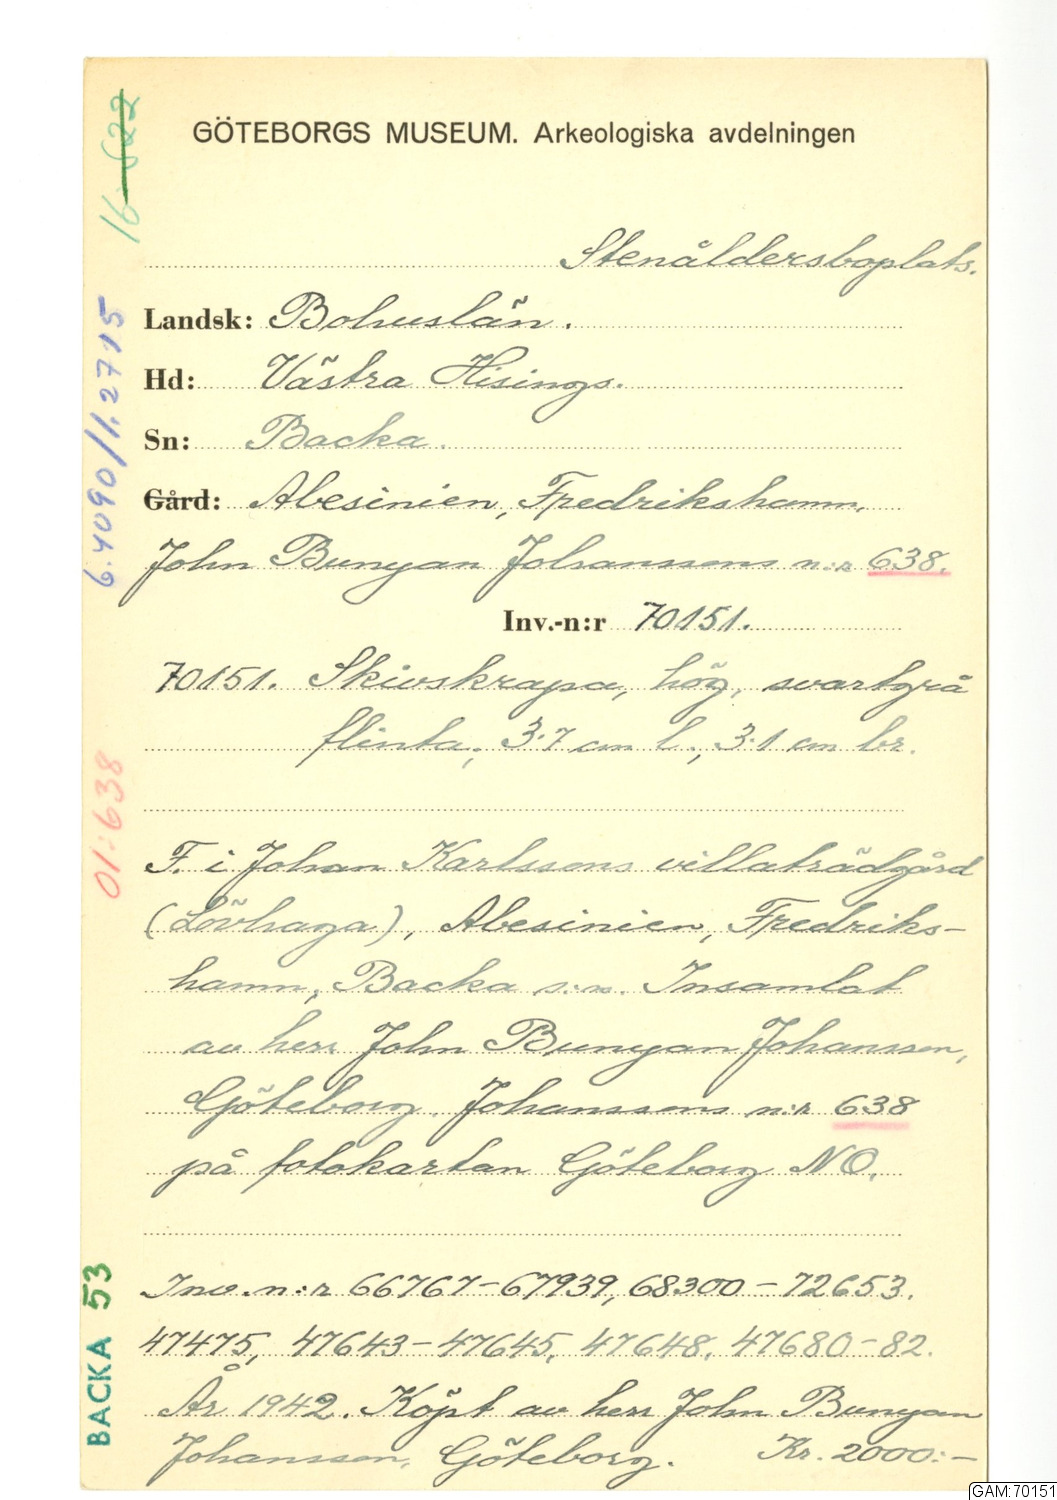 GÖTEBORGS MUSEUM. Arkeologiska avdelningen
Stenåldersboplats.
Landsk: Bohuslän.
Hd: Västra Hisings.
Sn: Backa.
Gård: Abesinien, Fredrikshamn,
John Bunyan Johanssons n:r 638.
Inv.-n:r 70151.
70151. Skivskrapa, hög, svartgrå
flinta, 3.7 cm l., 3.1 cm br.
F. i Johan Karlssons villaträdgård
(Lövhaga), Abesinien, Fredriks-
hamn, Backa s:n. Insamlat
av herr John Bunyan Johansson,
Göteborg. Johanssons n:r 638
på fotokartan Göteborg NO.
Inv. n:r 66767-67939, 68300-72653.
47475, 47643-47645, 47648, 47680-82.
År 1942. Köpt av herr John Bunyan
Johansson, Göteborg. Kr. 2000:-
16-622
6.4090/1:2715
01:638
BACKA 53
GAM:70151